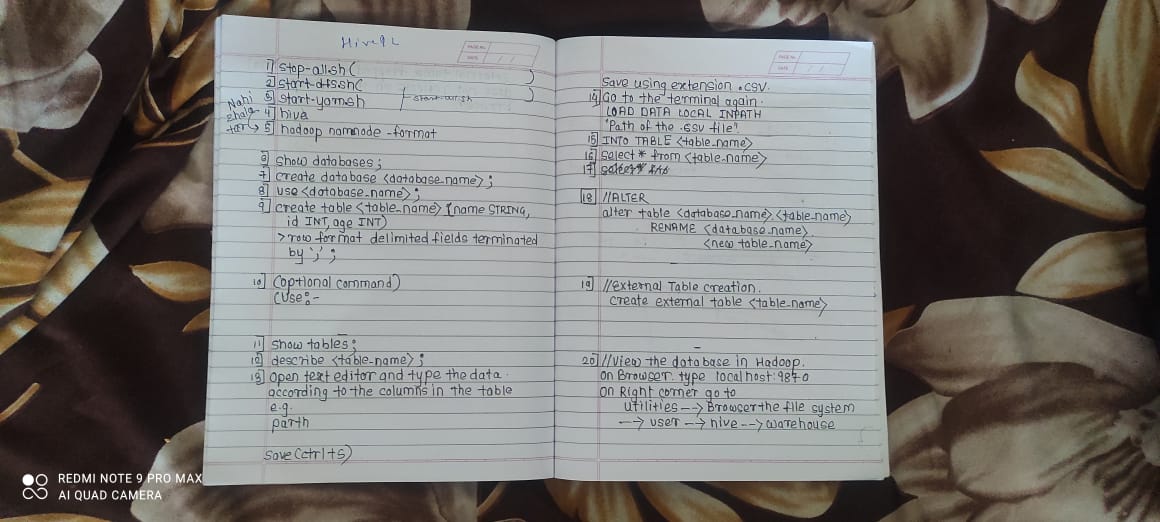 HiveQL
PAGE No.
DATE
1] stop-all.sh (
2] start-dfs.sh (
3] start-yarn.sh
start-all.sh
Nahi
zhala
tar →
4] hiva
5] hadoop namnode -format
6] show databases ;
7] create database <database_name> ;
8] use <database_name> ;
9] create table <table_name> (name STRING,
id INT, age INT)
> row format delimited fields terminated
by ',' ;
10] (optional command)
(Use:-
11] show tables ;
12] describe <table-name> ;
13] open text editor and type the data.
according to the columns in the table
e.g.
parth
save (ctrl+s)
PAGE No.
DATE
save using extension .csv.
14] Go to the terminal again.
LOAD DATA LOCAL INPATH
'Path of the .csv file'
15] INTO TABLE <table_name>
16] select * from <table_name>
17] select *
18] //ALTER
alter table <database_name>.<table_name>
RENAME <database_name>.
<new table_name>
19] //External Table creation.
create external table <table_name>
20] //View the database in Hadoop.
on Browser type localhost:9870
on Right corner go to
utilities --> Browser the file system
--> user --> hive --> warehouse
REDMI NOTE 9 PRO MAX
AI QUAD CAMERA